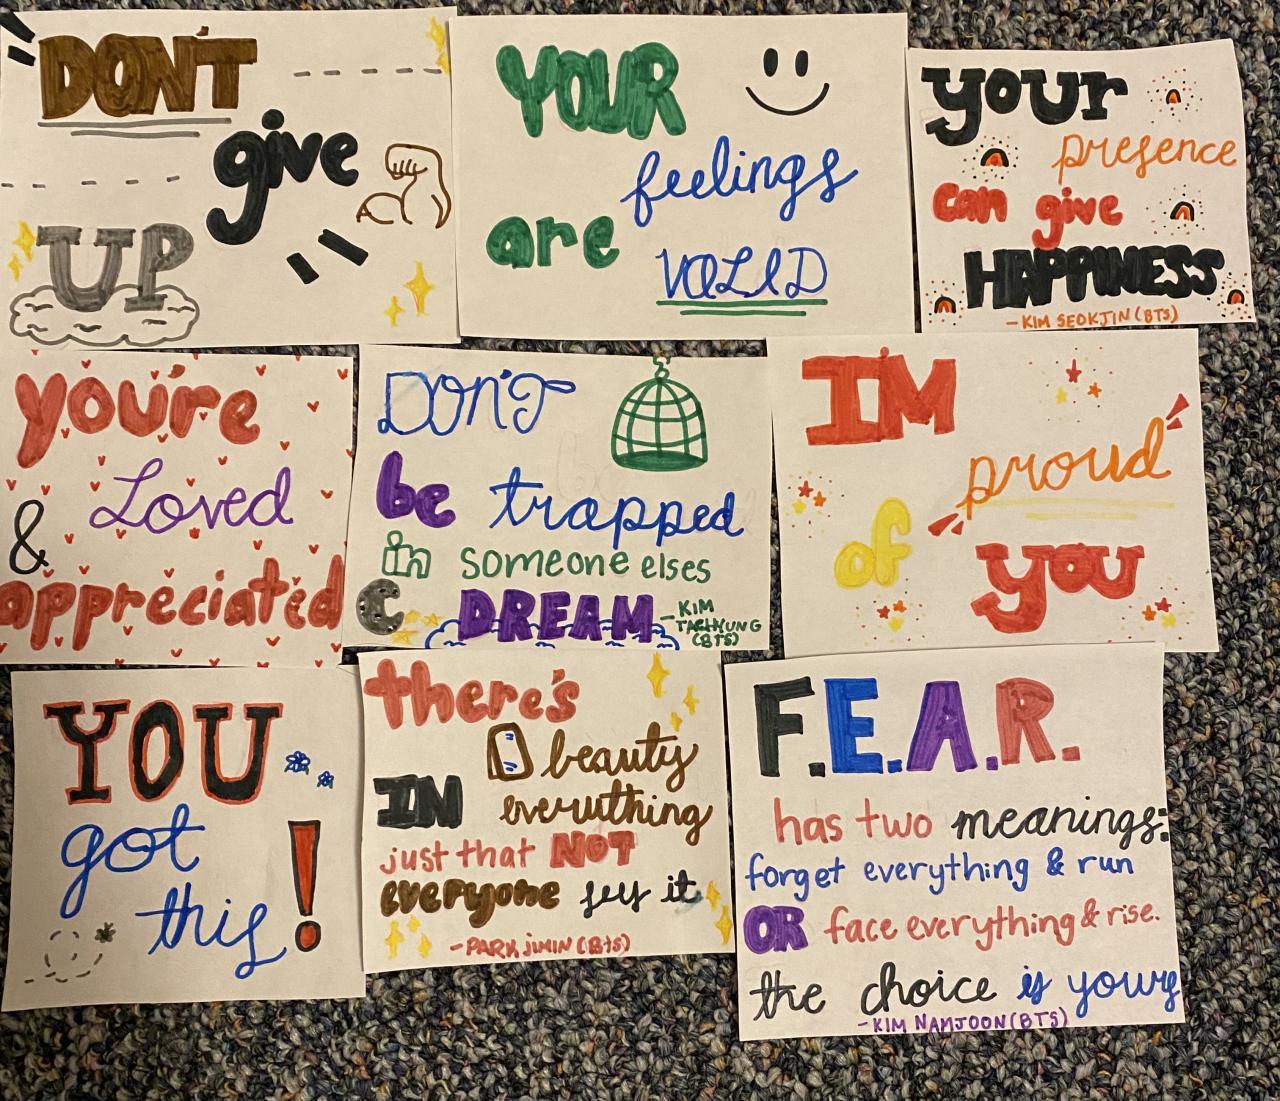 DON'T
give
UP
YOUR
feelings
are
VALID
your
presence
can give
HAPPINESS
- KIM SEOKJIN (BTS)
you're
Loved
&
appreciated
DON'T
be trapped
in someone elses
DREAM
- KIM
TAEHYUNG
(BTS)
I'M
proud
of
you
YOU
got
this!
there's
beauty
IN everything
just that NOT
everyone sey it
- PARK JIMIN (BTS)
F.E.A.R.
has two meanings:
forget everything & run
OR face everything & rise.
the choice is yours
- KIM NAMJOON (BTS)